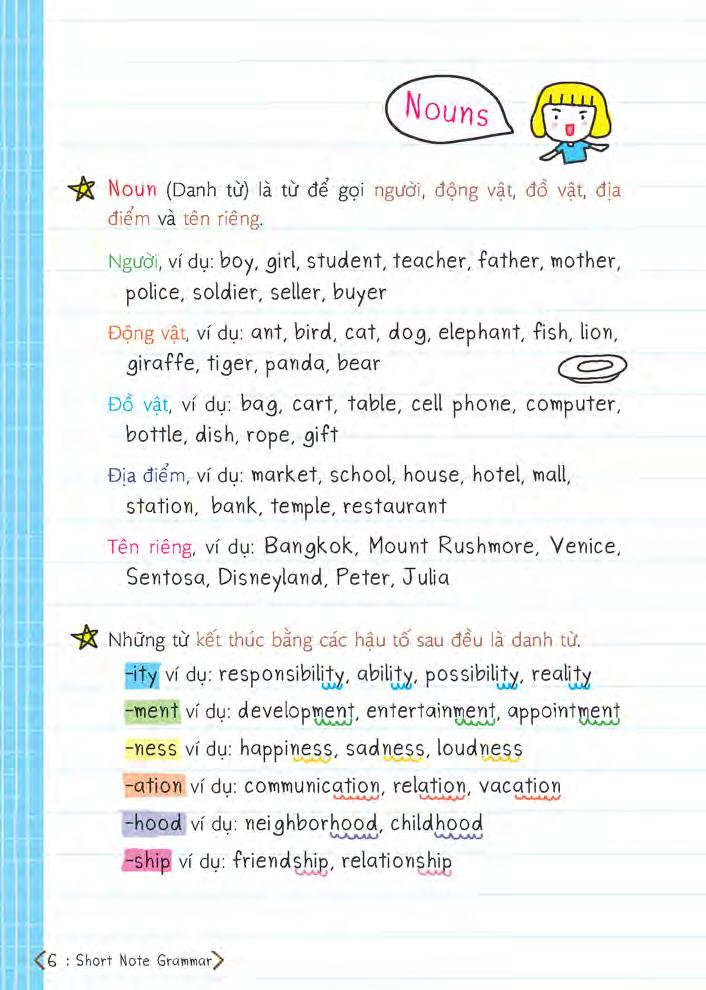 Nouns
Noun (Danh từ) là từ để gọi người, động vật, đồ vật, địa
điểm và tên riêng.
Người, ví dụ: boy, girl, student, teacher, father, mother,
police, soldier, seller, buyer
Động vật, ví dụ: ant, bird, cat, dog, elephant, fish, lion,
giraffe, tiger, panda, bear
Đồ vật, ví dụ: bag, cart, table, cell phone, computer,
bottle, dish, rope, gift
Địa điểm, ví dụ: market, school, house, hotel, mall,
station, bank, temple, restaurant
Tên riêng, ví dụ: Bangkok, Mount Rushmore, Venice,
Sentosa, Disneyland, Peter, Julia
Những từ kết thúc bằng các hậu tố sau đều là danh từ.
-ity ví dụ: responsibility, ability, possibility, reality
-ment ví dụ: development, entertainment, appointment
-ness ví dụ: happiness, sadness, loudness
-ation ví dụ: communication, relation, vacation
-hood ví dụ: neighborhood, childhood
-ship ví dụ: friendship, relationship
6 : Short Note Grammar